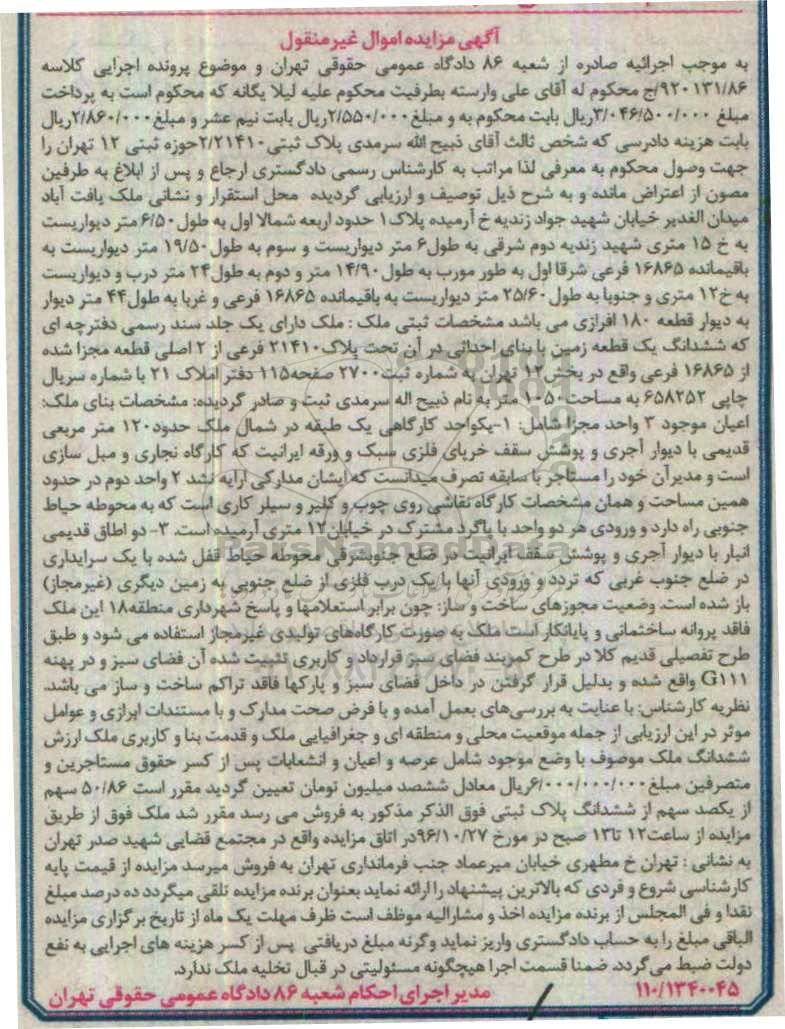 آگهی مزایده اموال غیرمنقول
به موجب اجرائیه صادره از شعبه ۸۶ دادگاه عمومی حقوقی تهران و موضوع پرونده اجرایی کلاسه
۹۲۰۱۳۱/۸۶/ج محکوم له آقای علی وارسته بطرفیت محکوم علیه لیلا یگانه که محکوم است به پرداخت
مبلغ ۳/۰۴۶/۵۰۰/۰۰۰ریال بابت محکوم به و مبلغ۲/۵۵۰/۰۰۰ریال بابت نیم عشر و مبلغ۲/۸۶۰/۰۰۰ریال
بابت هزینه دادرسی که شخص ثالث آقای ذبیح الله سرمدی پلاک ثبتی۲/۲۱۴۱۰حوزه ثبتی ۱۲ تهران را
جهت وصول محکوم به معرفی لذا مراتب به کارشناس رسمی دادگستری ارجاع و پس از ابلاغ به طرفین
مصون از اعتراض مانده و به شرح ذیل توصیف و ارزیابی گردیده محل استقرار و نشانی ملک یافت آباد
میدان الغدیر خیابان شهید جواد زندیه خ آرمیده پلاک۱ حدود اربعه شمالا اول به طول۶/۵۰ متر دیواریست
به خ ۱۵ متری شهید زندیه دوم شرقی به طول۶ متر دیواریست و سوم به طول۱۹/۵۰ متر دیواریست به
باقیمانده ۱۶۸۶۵ فرعی شرقا اول به طور مورب به طول۱۴/۹۰ متر و دوم به طول۲۴ متر درب و دیواریست
به خ۱۲ متری و جنوبا به طول۲۵/۶۰ متر دیواریست به باقیمانده ۱۶۸۶۵ فرعی و غربا به طول۴۴ متر دیوار
به دیوار قطعه ۱۸۰ افرازی می باشد مشخصات ثبتی ملک : ملک دارای یک جلد سند رسمی دفترچه ای
که ششدانگ یک قطعه زمین با بنای احداثی در آن تحت پلاک۲۱۴۱۰ فرعی از ۲ اصلی قطعه مجزا شده
از ۱۶۸۶۵ فرعی واقع در بخش۱۲ تهران به شماره ثبت۲۷۰۰ صفحه۱۱۵ دفتر املاک ۲۱ با شماره سریال
چاپی ۶۵۸۲۵۲ به مساحت۱۰۵۰ متر به نام ذبیح اله سرمدی ثبت و صادر گردیده: مشخصات بنای ملک:
اعیان موجود ۳ واحد مجزا شامل: ۱-یکواحد کارگاهی یک طبقه در شمال ملک حدود۱۲۰ متر مربعی
قدیمی با دیوار آجری و پوشش سقف خرپای فلزی سبک و ورقه ایرانیت که کارگاه نجاری و مبل سازی
است و مدیرآن خود را مستاجر با سابقه تصرف میدانست که ایشان مدارکی ارایه نشد ۲ واحد دوم در حدود
همین مساحت و همان مشخصات کارگاه نقاشی روی چوب و کلیر و سیلر کاری است که به محوطه حیاط
جنوبی راه دارد و ورودی هر دو واحد با پاگرد مشترک در خیابان۱۲ متری آرمیده است. ۳- دو اطاق قدیمی
انبار با دیوار آجری و پوشش سقف ایرانیت در ضلع جنوبشرقی محوطه حیاط قفل شده با یک سرایداری
در ضلع جنوب غربی که تردد و ورودی آنها با یک درب فلزی از ضلع جنوبی به زمین دیگری (غیرمجاز)
باز شده است. وضعیت مجوزهای ساخت و ساز: چون برابر استعلامها و پاسخ شهرداری منطقه۱۸ این ملک
فاقد پروانه ساختمانی و پایانکار است ملک به صورت کارگاه‌های تولیدی غیرمجاز استفاده می شود و طبق
طرح تفصیلی قدیم کلا در طرح کمربند فضای سبز قرارداد و کاربری تثبیت شده آن فضای سبز و در پهنه
G۱۱۱ واقع شده و بدلیل قرار گرفتن در داخل فضای سبز و پارکها فاقد تراکم ساخت و ساز می باشد.
نظریه کارشناس: با عنایت به بررسی‌های بعمل آمده و با فرض صحت مدارک و با مستندات ابرازی و عوامل
موثر در این ارزیابی از جمله موقعیت محلی و منطقه ای و جغرافیایی ملک و قدمت بنا و کاربری ملک ارزش
ششدانگ ملک موصوف با وضع موجود شامل عرصه و اعیان و انشعابات پس از کسر حقوق مستاجرین و
متصرفین مبلغ۶/۰۰۰/۰۰۰/۰۰۰ریال معادل ششصد میلیون تومان تعیین گردید مقرر است ۵۰/۸۶ سهم
از یکصد سهم از ششدانگ پلاک ثبتی فوق الذکر مذکور به فروش می رسد مقرر شد ملک فوق از طریق
مزایده از ساعت۱۲ تا۱۳ صبح در مورخ ۹۶/۱۰/۲۷در اتاق مزایده واقع در مجتمع قضایی شهید صدر تهران
به نشانی : تهران خ مطهری خیابان میرعماد جنب فرمانداری تهران به فروش میرسد مزایده از قیمت پایه
کارشناسی شروع و فردی که بالاترین پیشنهاد را ارائه نماید بعنوان برنده مزایده تلقی میگردد ده درصد مبلغ
نقدا و فی المجلس از برنده مزایده اخذ و مشارالیه موظف است ظرف مهلت یک ماه از تاریخ برگزاری مزایده
الباقی مبلغ را به حساب دادگستری واریز نماید وگرنه مبلغ دریافتی پس از کسر هزینه های اجرایی به نفع
دولت ضبط می گردد. ضمنا قسمت اجرا هیچگونه مسئولیتی در قبال تخلیه ملک ندارد.
۱۱۰/۱۳۴۰۰۴۵ مدیر اجرای احکام شعبه ۸۶ دادگاه عمومی حقوقی تهران